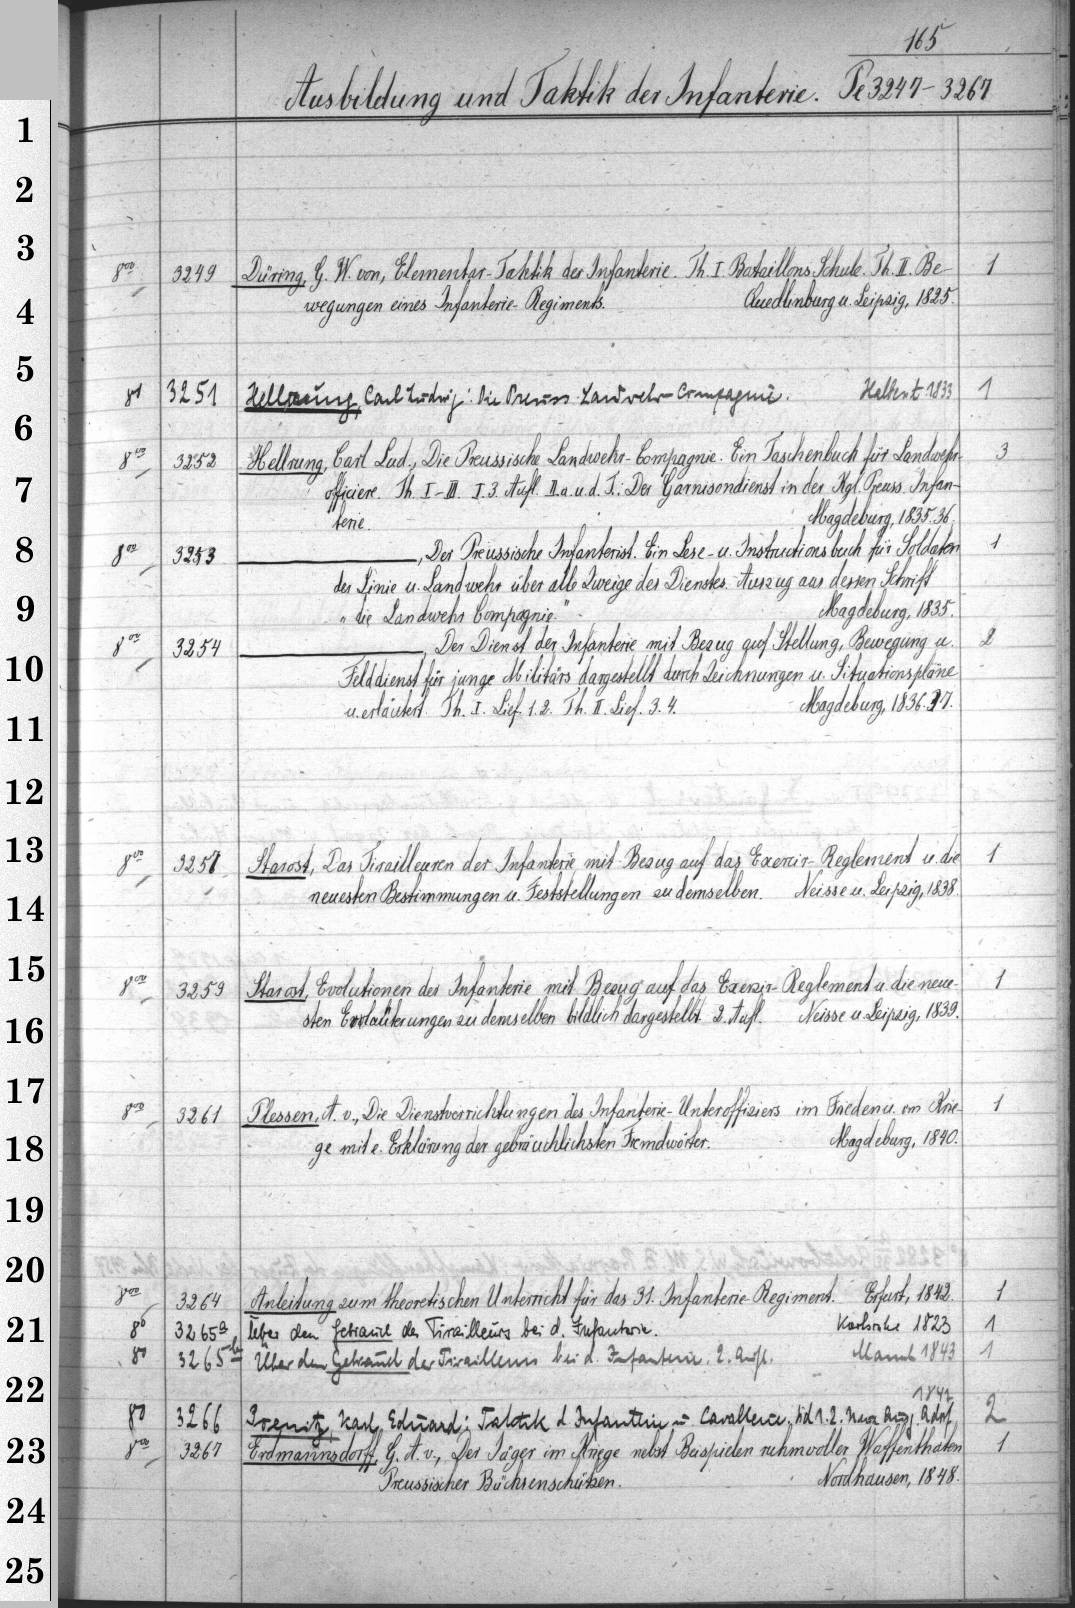 165
Ausbildung und Taktik der Infanterie. Pe 3247-3267
1
2
3
8vo 3249 Düring, G. W. von, Elementar-Taktik der Infanterie. Th. I Bataillons Schule. Th. II. Be- 1
wegungen eines Infanterie-Regiments. Quedlinburg u. Leipzig, 1825.
4
5
8° 3251 Hellrung, Carl Ludwig: Die Preuss. Landwehr-Compagnie. 1833 1
6
8vo 3252 Hellrung, Carl Lud., Die Preussische Landwehr-Compagnie. Ein Taschenbuch für Landwehr- 3
7
officiere. Th. I-III. I 3. Aufl. II a. u. d. T.: Der Garnisondienst in der Kgl. Preuss. Infan-
terie. Magdeburg, 1835.36.
8
8vo 3253 ———, Der Preussische Infanterist. Ein Lese- u. Instructionsbuch für Soldaten 1
der Linie u. Landwehr über alle Zweige des Dienstes. Auszug aus dessen Schrift
9
„die Landwehr Compagnie." Magdeburg, 1835.
8vo 3254 ———, Der Dienst der Infanterie mit Bezug auf Stellung, Bewegung u. 2
10
Felddienst für junge Militärs dargestellt durch Zeichnungen u. Situationspläne
u. erläutert. Th. I. Lief. 1.2. Th. II. Lief. 3.4. Magdeburg, 1836.37.
11
12
13
8vo 3257 Starost, Das Tirailleuren der Infanterie mit Bezug auf das Exercir-Reglement u. die 1
neuesten Bestimmungen u. Feststellungen zu demselben. Neisse u. Leipzig, 1838.
14
15
8vo 3259 Starost, Evolutionen der Infanterie mit Bezug auf das Exerzir-Reglement u. die neue- 1
sten Erläuterungen zu demselben bildlich dargestellt. 2. Aufl. Neisse u. Leipzig, 1839.
16
17
8vo 3261 Plessen, A. v., Die Dienstverrichtungen des Infanterie-Unteroffiziers im Frieden u. im Krie- 1
18
ge mit e. Erklärung der gebräuchlichsten Fremdwörter. Magdeburg, 1840.
19
20
8vo 3264 Anleitung zum theoretischen Unterricht für das 31. Infanterie-Regiment. Erfurt, 1842. 1
21
8° 3265a Über den Gebrauch der Tirailleurs bei d. Infanterie. Karlsruhe 1823 1
8° 3265b Über den Gebrauch der Tirailleurs bei d. Infanterie. 2. Aufl. 1843 1
22
1842
8° 3266 Karl Eduard: Taktik d Infanterie u Cavallerie. Bd 1.2. Neue Ausg. Adorf 2
23
8vo 3267 Erdmannsdorff, G. A. v., Der Jäger im Kriege nebst Beispielen ruhmvoller Waffenthaten 1
Preussischer Büchsenschützen. Nordhausen, 1848.
24
25